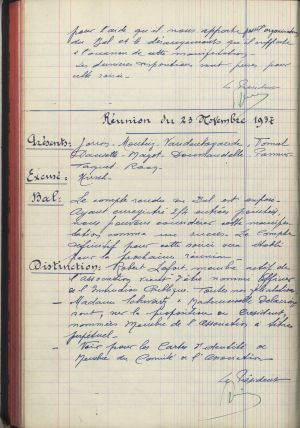 pour l'aide qu'il nous apporte pour l'organisation
du Bal et le dérangement qu'il supporte
à l'occasion de cette manifestation.
Les dernières dispositions sont prises pour
cette soirée.
Le Président
Réunion du 23 Novembre 1937
Présents:
Excusé: Hirsch
Bal: Le compte rendu du Bal est exposé
Ayant enregistré entrées payantes,
nous pouvons considérer cette manifes-
tation comme un succès. Le compte
définitif pour cette soirée sera établi
pour la prochaine réunion.
Distinction: Robert Lafore, membre actif de
l'association vient d'être nommé Officier
de l'Instruction Publique. Toutes nos félicitations.
- Madame & Mademoiselle
sont, sur la proposition du Président
nommées Membre de l'Association à titre
perpétuel.
- Voté pour les Cartes d'Identité de
Membre du Comité de l'Association
Le Président